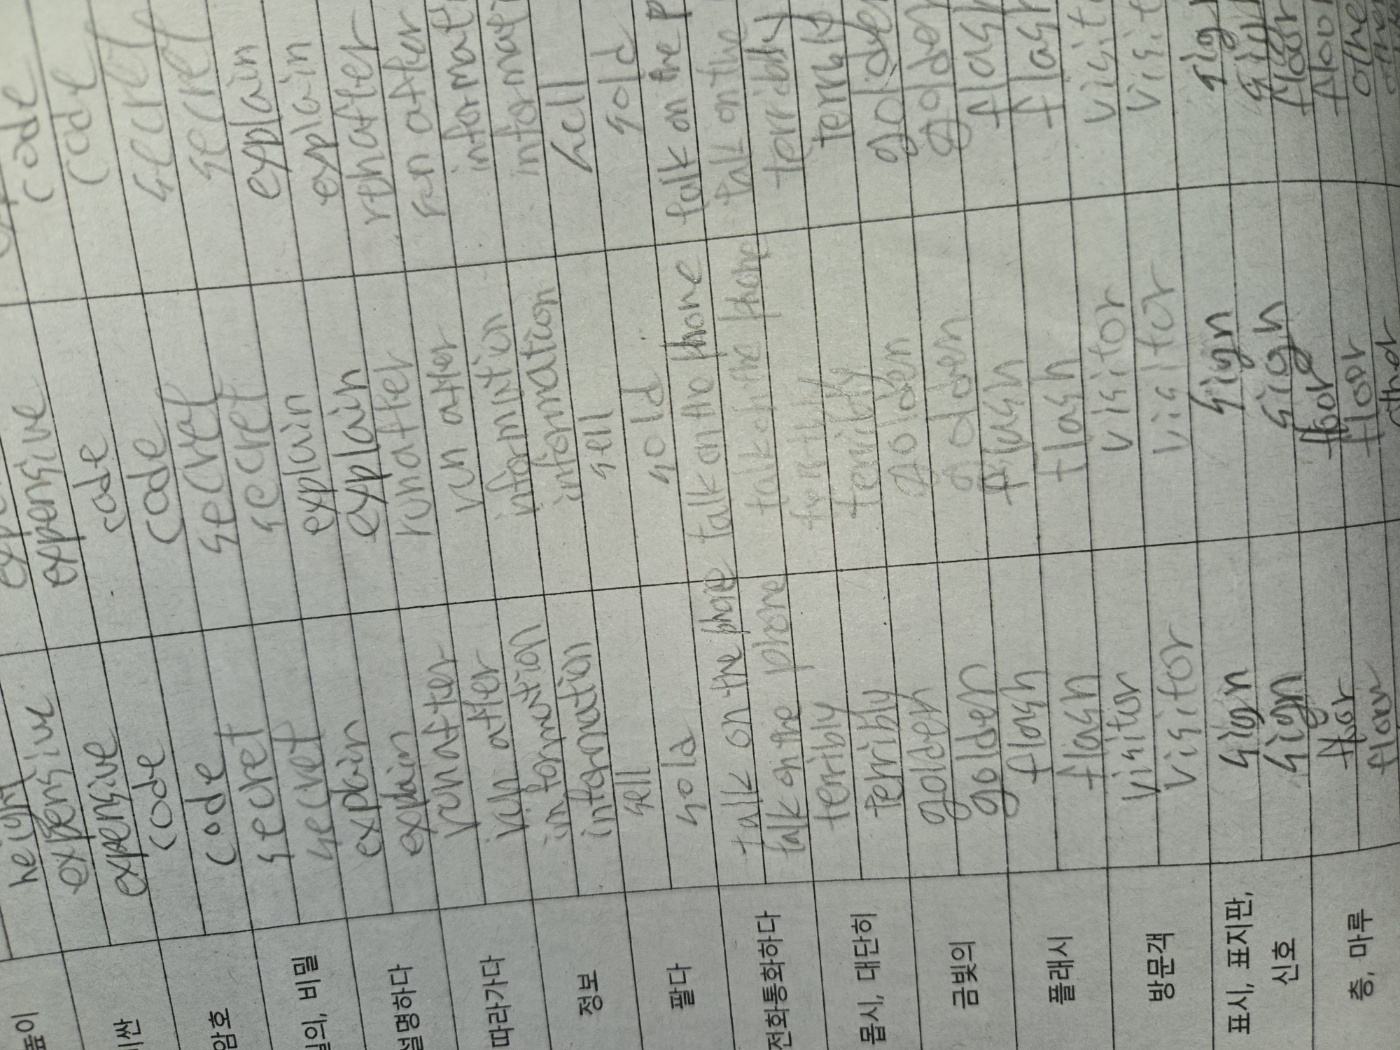 높이 height
expensive expensive
비싼 expensive
code code code
암호 code code code
secret secret secret
비밀 secret secret secret
explain explain explain
설명하다 explain explain explain
run after run after
따라가다 run after run after run after
information information
정보 information information
sell sell sell
팔다 sold sold sold
talk on the phone talk on the phone talk on the
전화통화하다 talk on the phone talk on the phone talk on the
terribly terribly
몹시, 대단히 terribly
golden golden golden
금빛의 golden golden golden
flash flash flash
플래시 flash flash flash
visitor visitor
방문객 visitor visitor
sign sign
표시, 표지판,
신호 sign sign
floor floor
층, 마루 floor floor